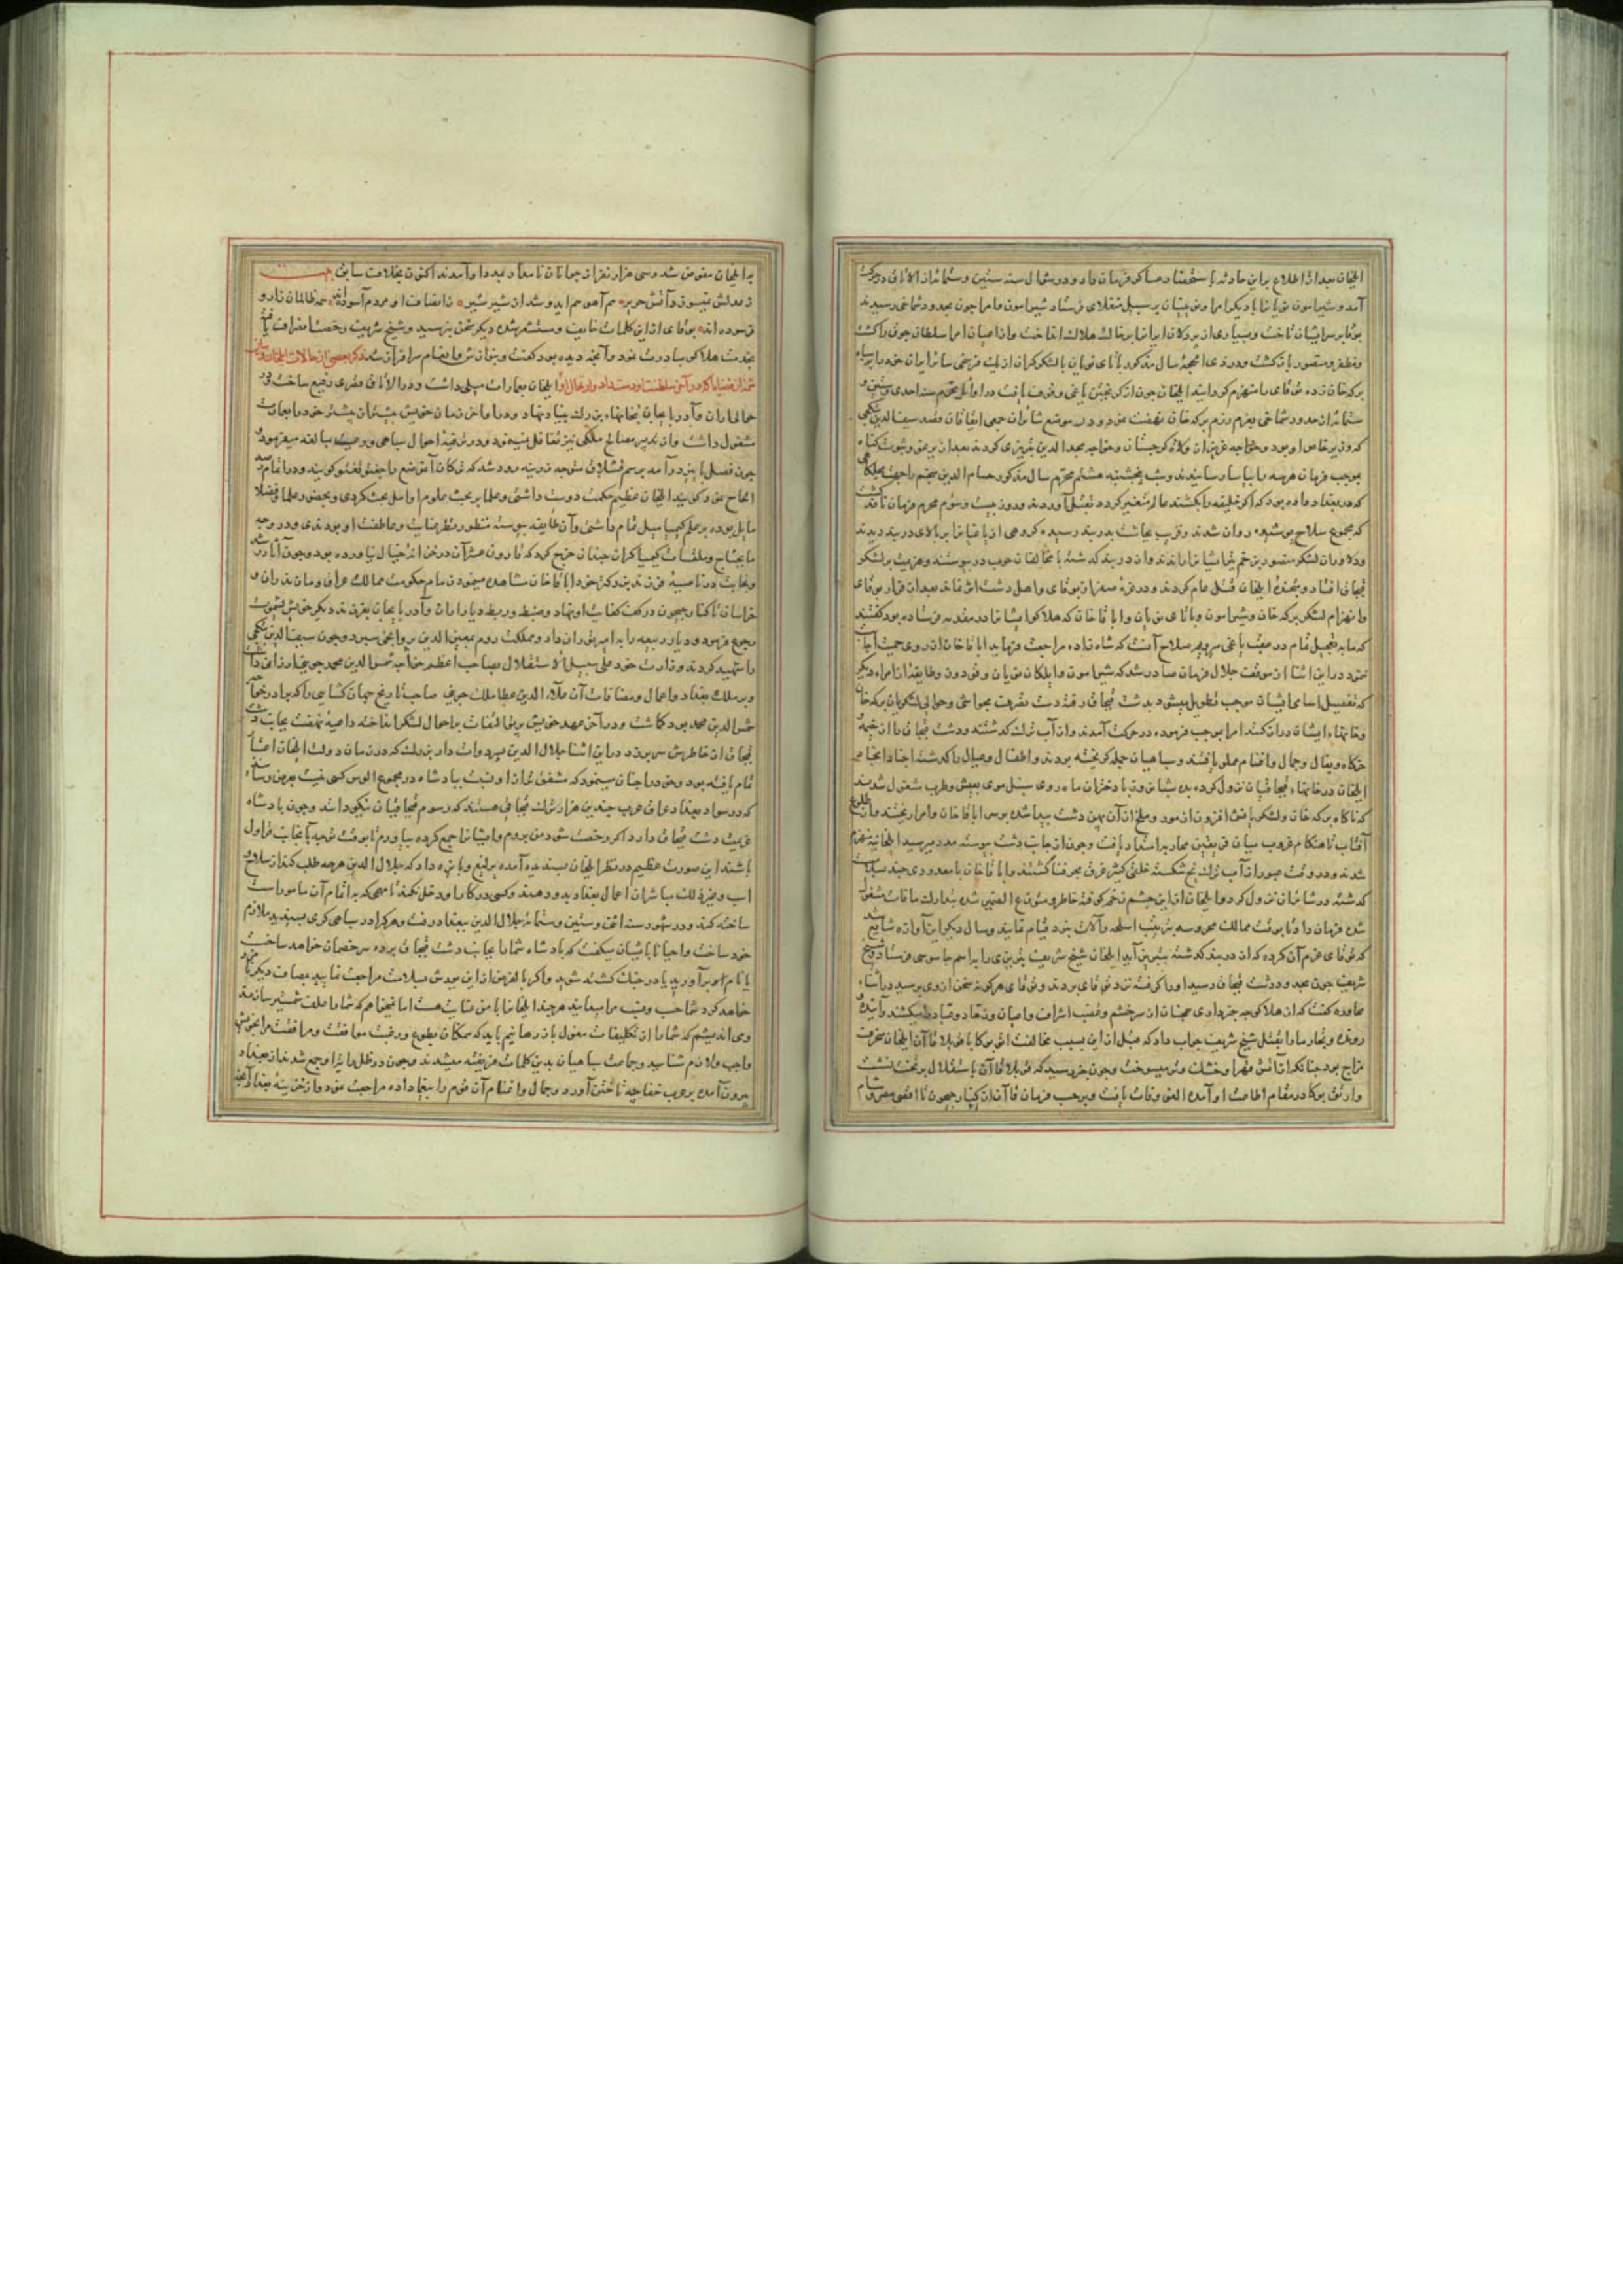 ایلخان بعد از اطلاع براین حادثه باستحضار عساکر فرمان داد و در شوال سنه ستین و ستمائه از الاتاق در حرکت
آمد و شیرامون نویان را با دیگر امرا و نوینیان بر سبیل منغلای فرستاد شیرامون و امرا چون بحدود شماخی رسیدند
برکه خان زده نوقای را منهزم کردانید ایلخان چون از کریختن یاغی وقوف یافت در اوایل محرم سنه احدی وستین و
ستمائه از حدود شماخی بعزم رزم برکه خان نهضت نمود و در موضع شابران جمعی ایقاقان قصد سیف الدین بتکچی
که وزیر خاص او بود و خواجه عزیز از ولاة کرجستان و خواجه مجد الدین تبریزی کردند بعد از یرغو و ثبوت کناه
بموجب فرمان هرسه را بیاسا رسانیدند و شب پنجشنبه هشتم محرم سال مذکور حسام الدین منجم را جهت
که در بغداد داده بود که اکر خلیفه را بکشند عالم متغیر کردد بقتل آوردند و روز بیست و سوم محرم فرمان نافذ کشت
که مجموع سلاح پوشیده روان شدند و قریب بچاشت بدربند رسیده کروهی از یاغیانرا بر بالای دربند دیدند
قبچاق افتاد و بنجده ایلخان قتل عام کردند و در غره صفر از نوقای و اهل دشت اثر نماند بعد از فرار نوقای
وانهزام لشکر برکه خان و شیرامون و اباتای نویان و اباقا خان که هلاکو ایشانرا در مقدمه فرستاده بود کفتند
که ما بتعجیل تمام در عقب یاغی میرویم صلاح آنست که شاه زاده مراجعت فرماید اباقا خان از روی حمیت اجابت
ننمود در این اثنا از موقف جلال فرمان صادر شد که شیرامون و ایلکان نویان و دون و طایفه از امراء دیکر
که تفصیل اسامی ایشان موجب تطویل میشود بدشت قبچاق رفته دست تصرف بحواشی و حوالی لشکریان برکه خان
وخانهاء ایشان دراز کنند امرا بموجب فرموده در حرکت آمدند و از آب ترک کذشتند و دشت قبچاق را از خیمه
خرکاه و بغال و جمال و اغنام مملو یافتند و سپاهیان جمله کریخته بودند و اطفال و عیال را کذشته اجناد ایلخانی
ایلخان در خانهاء قبچاقیان نزول کرده بده شبانروز با دختران ماه روی سنبل موی بعیش و طرب مشغول شدند
که ناکاه برکه خان و لشکر یافث افزون از مور و ملخ از آن پهن دشت پیدا شده بر سر اباقا خان و امرا ریختند و از طلوع
آفتاب تا هنکام غروب میان فریقین محاربه امتداد یافت و چون از جانب دشت پیوسته مدد میرسید ایلخانیه منهزم
شدند و در وقت عبور از آب ترک یخ شکسته خلقی کثیر غرق بحر فنا کشتند و اباقا خان با معدودی چند بسلامت
کذشته در شابران نزول کرد و ایلخان از این چشم زخم کوفته خاطر و متوزع الضمیر شده بتدارک مافات مشغول
شده فرمان داد تا بوقت ممالک محروسه بترتیب اسلحه و آلات نبرد قیام نمایند و سال دیکر این آوازه شایع شد
که نوقای عزم آن کرده که از دربند کذشته بتبریز آید ایلخان شیخ شریف تبریزی را براسم جاسوسی فرستاد و شیخ
شریف چون بحدود دشت قبچاق رسید او را کرفته نزد نوقای بردند و نوقای هرکونه سخن از وی پرسید در اثناء
محاوره کفت که از هلاکو چه خبر داری همچنان از سر خشم و غضب اشراف و اعیان و زهاد و عباد را میکشد و آینده
رونده و تجار ما را بقتل شیخ شریف جواب داد که قبل از این بسبب مخالفت اریغ بوکا با قوبلا قاآن ایلخان منحرف
مزاج بود چنانکه از آتش قهر او خشک و تر میسوخت و چون خبر رسید که قوبلا قاآن باستقلال بر تخت نشست
واریغ بوکا در مقام اطاعت او آمده الغو وفات یافت و بموجب فرمان قاآن از کنار جیحون تا اقصی مصر و شام
به ایلخان مفوض شد و سی هزار نفر از جوانان نامدار بمدد او آمدند اکنون بخلاف سابق بیت
ز عدلش نمیسوزد آتش حریر هم آهو هم آید و شد از شیر شیر ز انصاف او مردم آسوده‌اند همه ظالمان زار و
فرسوده‌اند نوقای از این کلمات خایف و مستشعر شده دیکر سخن نپرسید و شیخ شریف رخصت انصراف یافته
بخدمت هلاکو مبادرت نمود و آنچه دیده بود کفت و بنوازش و انعام سرافراز شد ذکر بعضی از حالات ایلخان و بیان
شمه از قضایا که در آخر سلطنت او دست داد و ارتحال او ایلخان بعمارات میلی داشت و در الاتاق قصری رفیع ساخت و در
حوالی اران و آذربایجان بتخانهاء بزرک بنیاد نهاد و در اواخر زمان خویش بیشتر از پیشتر خود را بعمارت
مشغول داشت و از تدبیر مصالح ملکی نیز تغافل نمینمود و در ترفیه احوال سپاهی و رعیت مبالغه میفرمود
چون فصل پاییز درآمد برسم قشلاق متوجه زرینه رود شد که ترکان آن موضع را جغتو نغتو کویند و در اتمام رصد
الحاح نمود کویند ایلخان عظیم حکمت دوست داشتی و علما بر بحث علوم اوایل بحث کردی و بحضور علما و فضلا
مایل بوده بر علم کیمیا میل تمام داشتی و آن طایفه پیوسته منظور نظر عنایت و عاطفت او بودندی و در وجه
ما یحتاج و ملتمسات کیمیاکران چندان خرج کرد که قارون عشر آن در خزانه خیال نیاورده بود و چون آثار رشد
و نجابت در ناصیه فرزند بزرکتر خود اباقا خان مشاهده مینمود زمام حکومت ممالک عراق و مازندران و
خراسان تا کنار جیحون در کف کفایت او نهاد و ضبط و ربط دیار اران و آذربایجان بفرزند دیکر خویش یشموت
رجوع فرمود و دیار ربیعه را به امیر توران داد و مملکت روم بمعین الدین پروانه سپرد و چون سیف الدین بتکچی
را شهید کردند وزارت خود علی سبیل الاستقلال بصاحب اعظم خواجه شمس الدین محمد جوینی ارزانی داشت
و بر ملک بغداد و اعمال و مضافات آن علاء الدین عطا ملک جوینی صاحب تاریخ جهان کشای را که برادر خواجه
شمس الدین محمد بود کماشت و در آخر عهد خویش پرتو التفات بر احوال لشکر انداخته داعیه نهضت بجانب دشت
قبچاق از خاطرش سر برزد در این اثنا جلال الدین پسر دوات دار بزرک که در زمان دولت ایلخان اعتبار
تمام یافته بود و خود را چنان مینمود که مشفق‌تر از او نسبت بپادشاه در مجموع الوس کسی نیست بعرض رسانید
که در سواد بغداد عراق عرب چندین هزار ترک قبچاقی هستند که رسوم قبچاقیان نیکو دانند و چون پادشاه
عزیمت دشت قبچاق دارد اکر رخصت شود من بروم و ایشانرا جمع کرده بیاورم تا بوقت توجه بآنجانب قراول
باشند این صورت عظیم در نظر ایلخان پسندیده آمده یرلیغ و پایزه داد که جلال الدین هرچه طلب کند از سلاح
اسب و غیر ذلک مباشران اعمال بغداد بدو دهند و کسی در کار او دخل نکند تا مهمی که به اتمام آن مامور است
ساخته کند و در شهور سنه اثنی و ستین و ستمائه جلال الدین ببغداد رفت و هرکرا در سپاهی کری پسندید ملازم
خود ساخت و احیانا با ایشان میکفت که پادشاه شما را بجانب دشت قبچاق برده سپر خصمان خواهد ساخت
تا نام او برآورید یا در جنک کشته شوید و اکر بالفرض از این یورش بسلامت مراجعت نمایید بمصاف دیکر نامزد
خواهد کرد شما حسب و نسب مرا میدانید هرچند ایلخانرا با من عنایت هست اما نمیخواهم که شما را علف شمشیر سازند
و می اندیشم که شما را از تکلیفات مغول باز رهانیم باید که همکنان بطوع و رغبت موافقت و مرافقت مرا
واجب و لازم شناسید و جماعت سپاهیان بدین کلمات فریفته میشدند و چون در ظل رایت او جمع شدند از بغداد
بیرون آمده بر عرب خفاجه تاختن آورد و جمال و اغنام آن قوم را بیغما داده مراجعت نمود و از خزینه بغداد آنچه